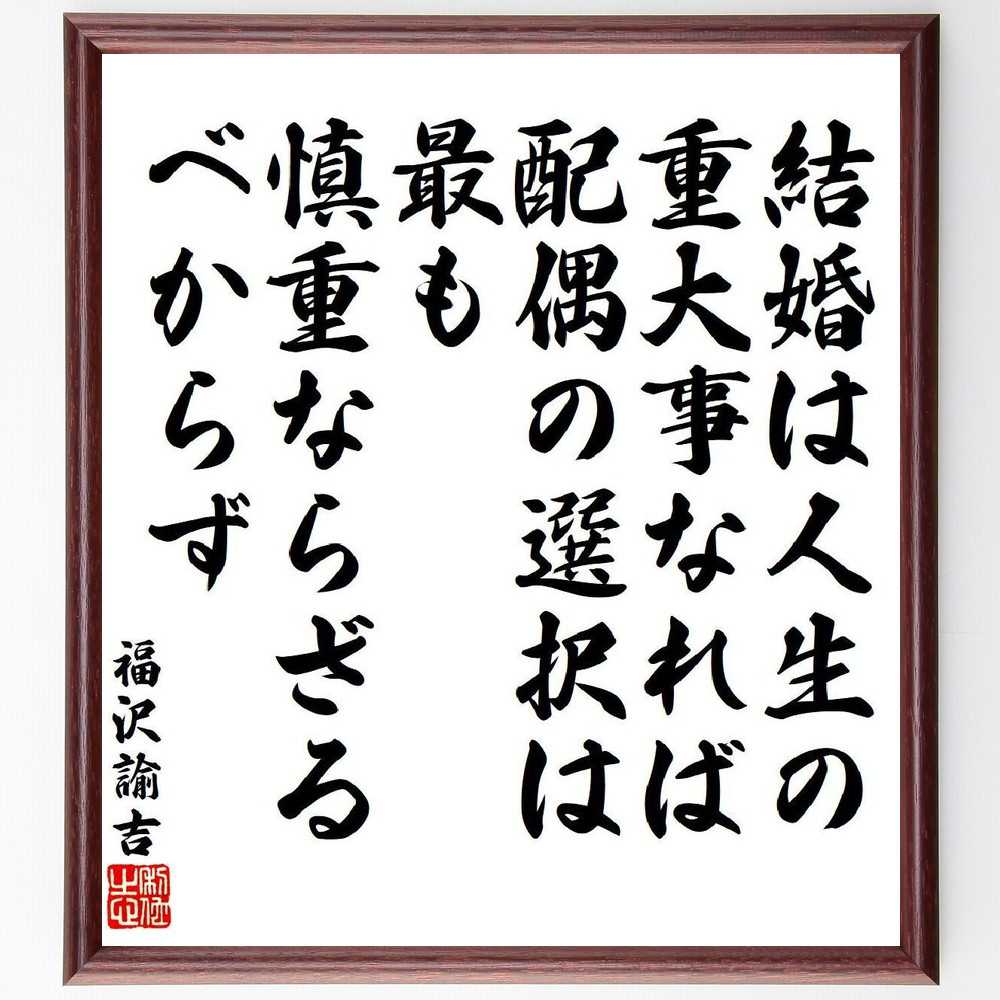 結婚は人生の
重大事なれば
配偶の選択は
最も
慎重ならざる
べからず
福沢諭吉